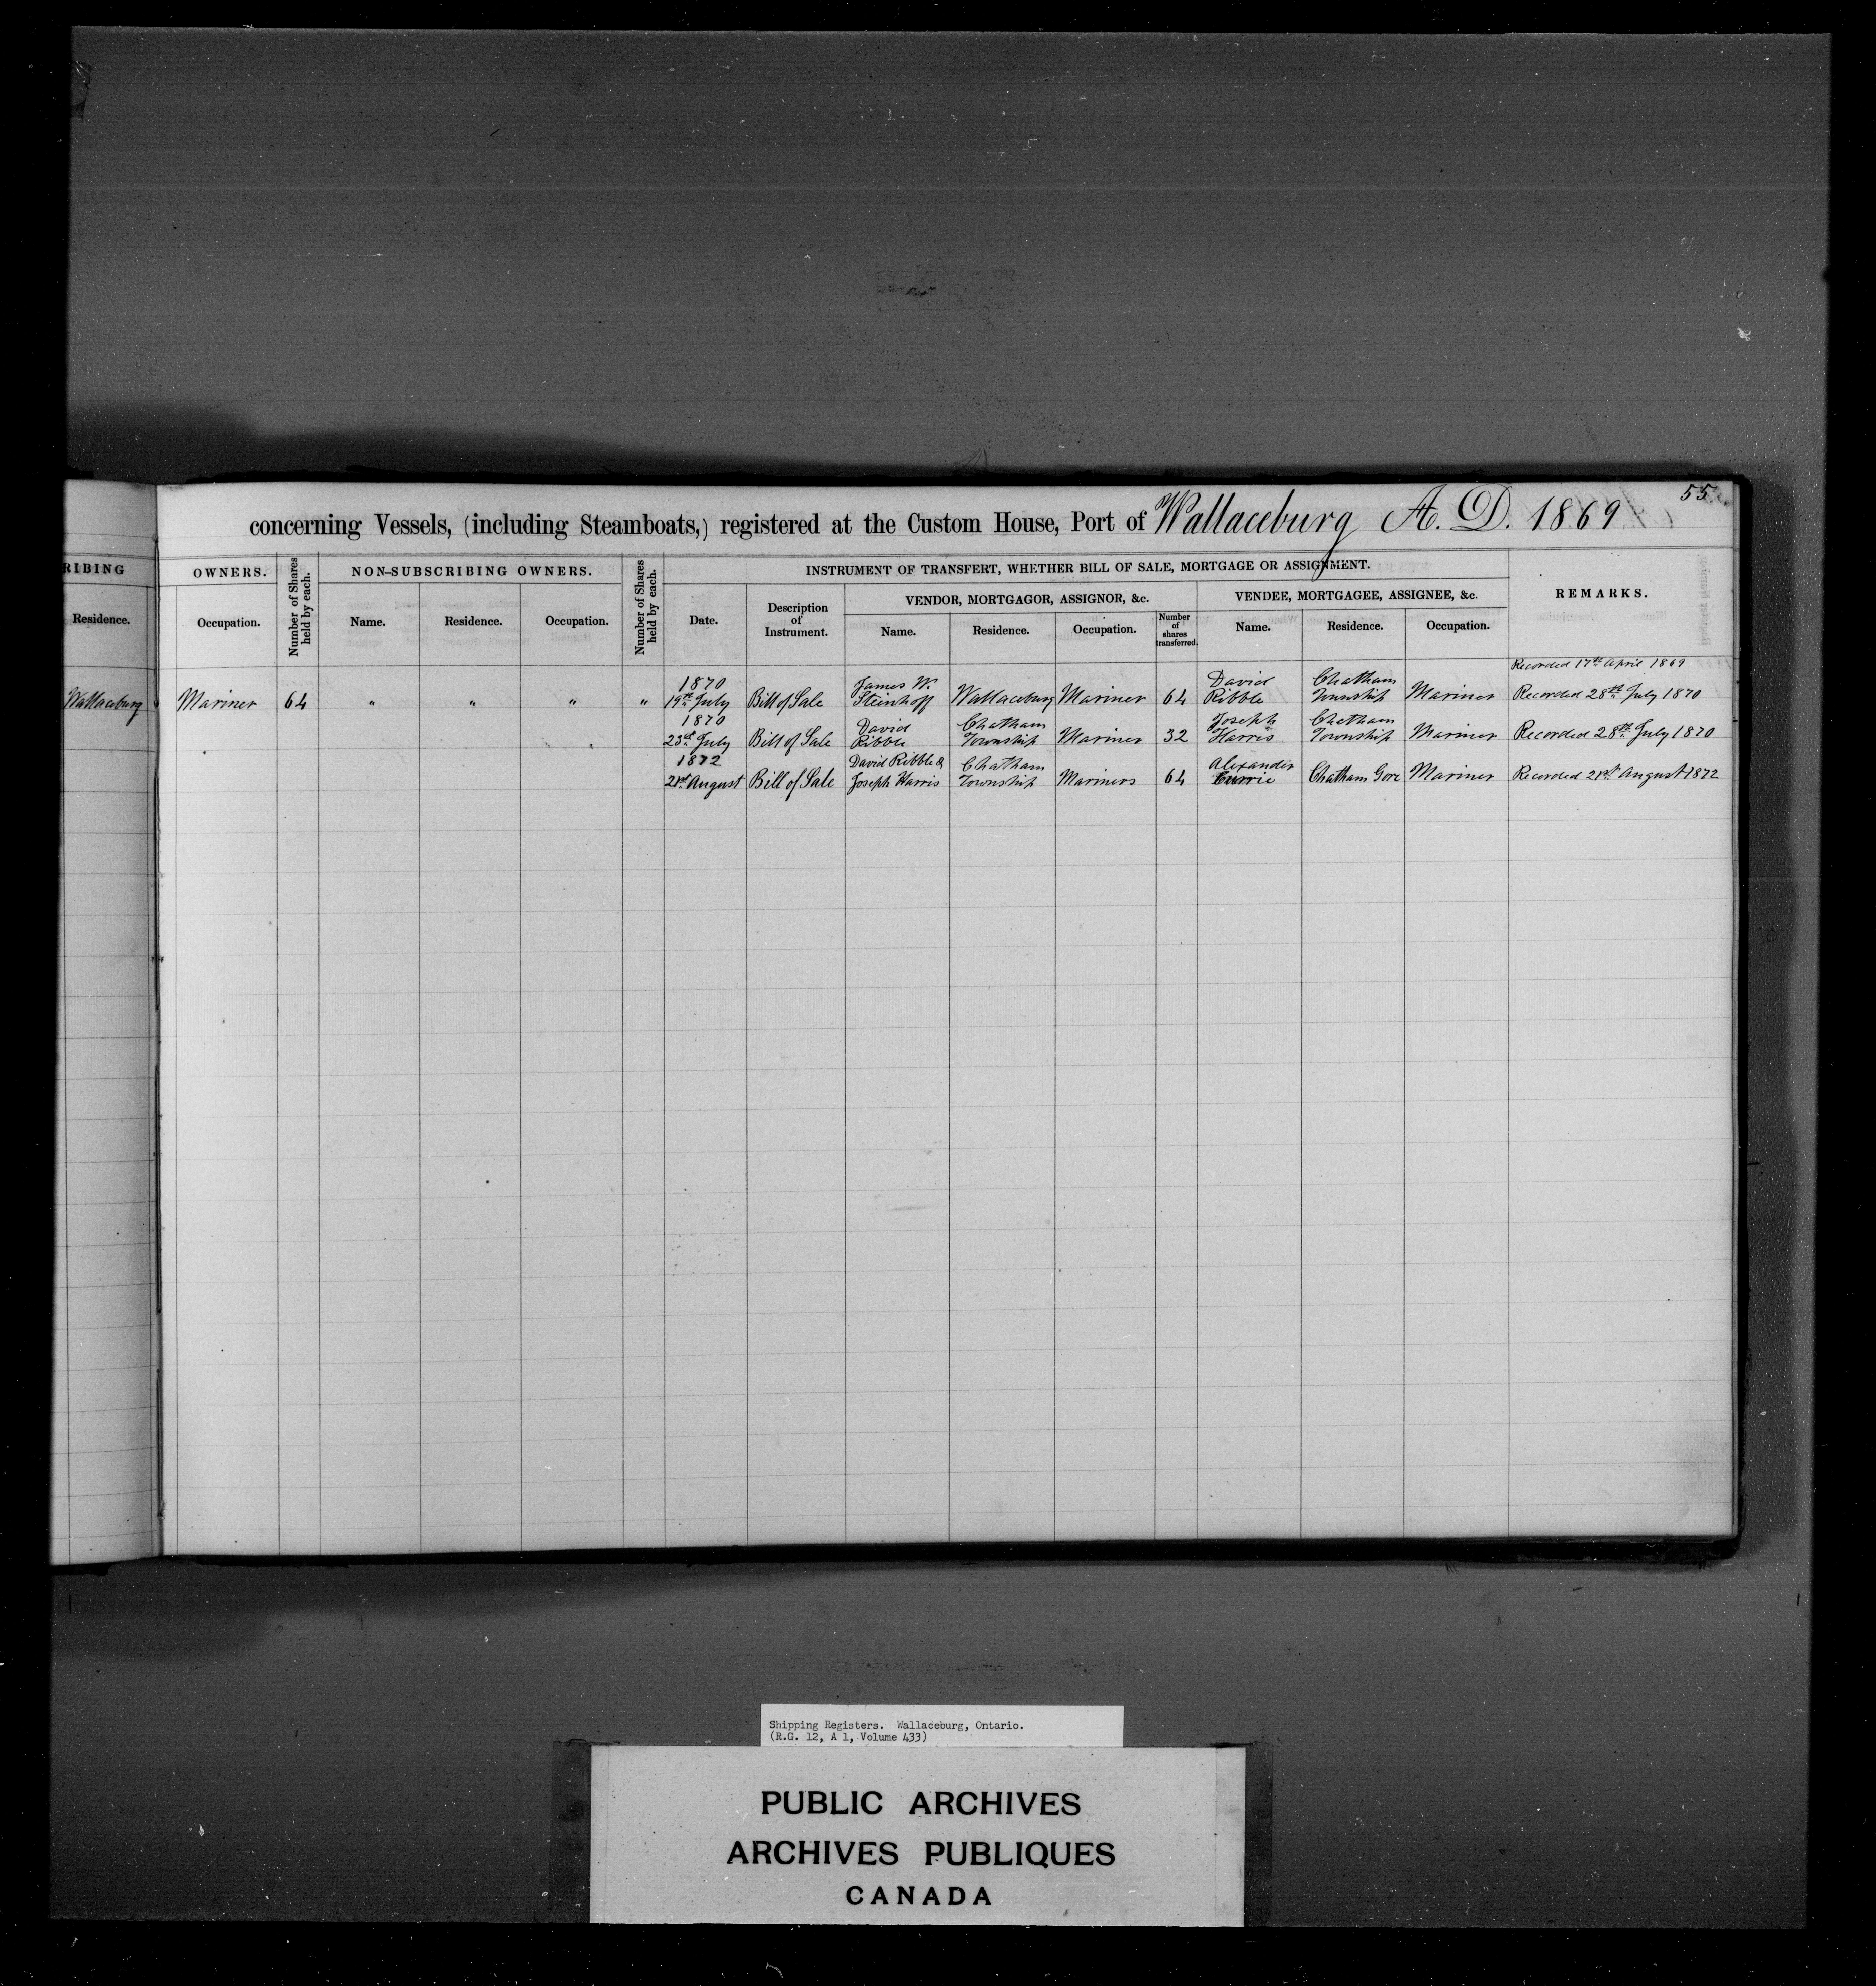 55
concerning Vessels, (including Steamboats,) registered at the Custom House, Port of Wallaceburg A. D. 1869
RIBING
OWNERS.
Number of Shares held by each.
NON-SUBSCRIBING OWNERS.
Number of Shares held by each.
INSTRUMENT OF TRANSFERT, WHETHER BILL OF SALE, MORTGAGE OR ASSIGNMENT.
REMARKS.
VENDOR, MORTGAGOR, ASSIGNOR, &c.
VENDEE, MORTGAGEE, ASSIGNEE, &c.
Residence.
Occupation.
Name.
Residence.
Occupation.
Date.
Description of Instrument.
Name.
Residence.
Occupation.
Number of shares transferred.
Name.
Residence.
Occupation.
Recorded 17th April 1869
1870 James W. David Chatham
Wallaceburg Mariner 64 " " " " 19th July Bill of Sale Steinhoff Wallaceburg Mariner 64 Ribble Township Mariner Recorded 28th July 1870
1870 David Chatham Joseph Chatham
23d July Bill of Sale Ribble Township Mariner 32 Harris Township Mariner Recorded 28th July 1870
1872 David Ribble & Chatham Alexander
21st August Bill of Sale Joseph Harris Township Mariners 64 Currie Chatham Gore Mariner Recorded 21st August 1872
Shipping Registers. Wallaceburg, Ontario.
(R.G. 12, A 1, Volume 433)
PUBLIC ARCHIVES
ARCHIVES PUBLIQUES
CANADA